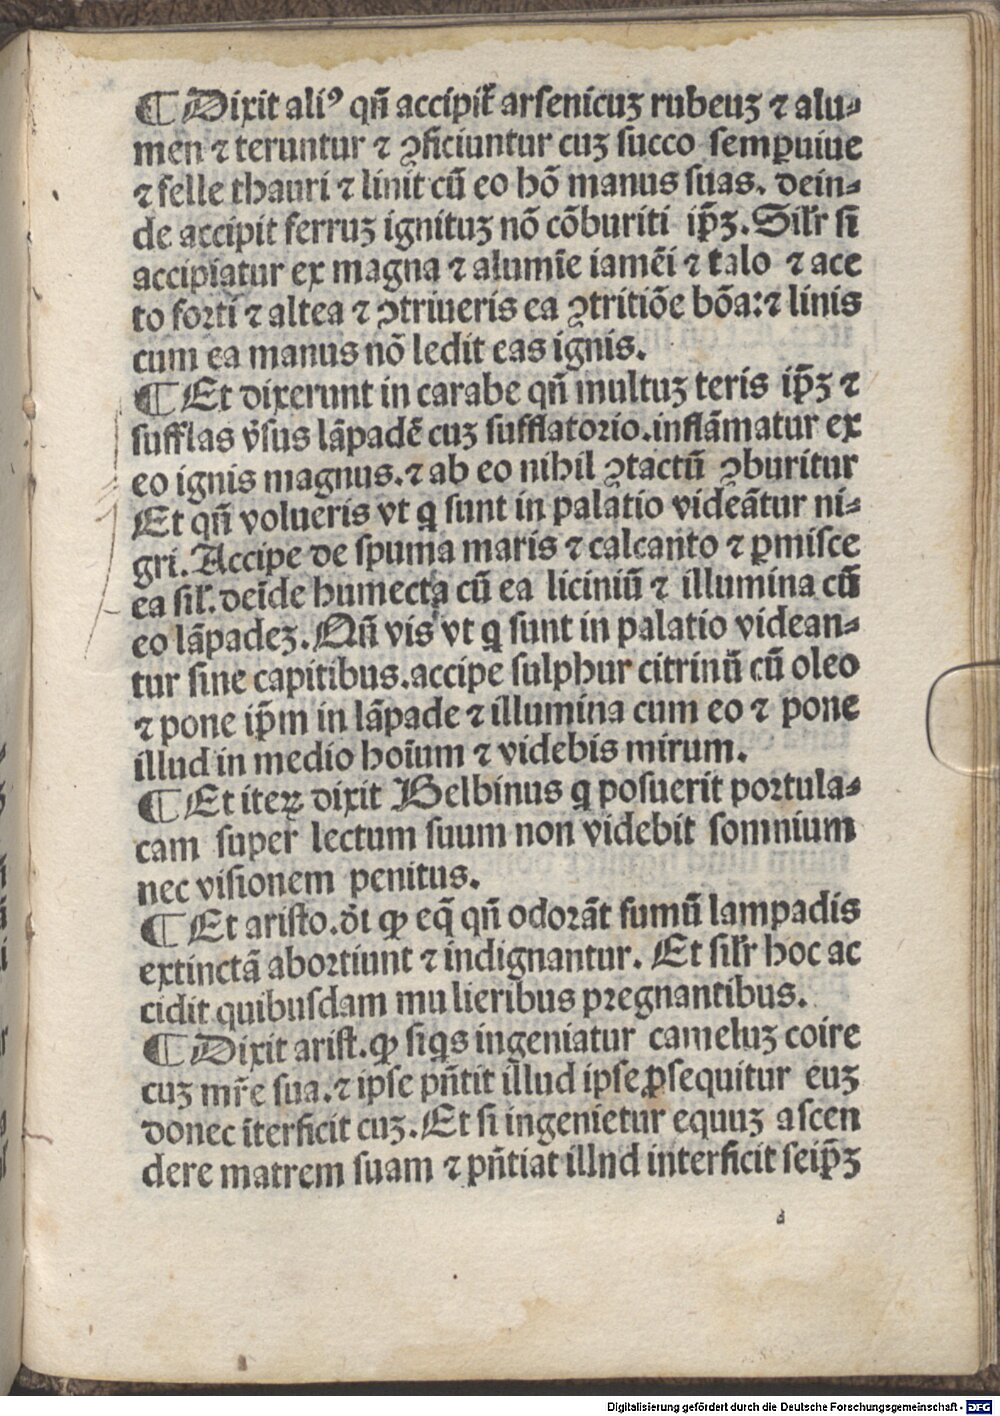 ¶ Dixit aliꝰ qn̄ accipit̃ arsenicuꝫ rubeuꝫ ⁊ alu⸗
men ⁊ teruntur ⁊ ꝯficiuntur cuꝫ succo semꝑuiue
⁊ felle thauri ⁊ linit cū eo hō manus suas. dein⸗
de accipit ferruꝫ ignituꝫ nō cōburiti ip̄ꝫ. Sil̃r si
accipiatur ex magna ⁊ alumīe iamēi ⁊ talo ⁊ ace
to forti ⁊ altea ⁊ ꝯtriueris ea ꝯtritiōe bōa: ⁊ linis
cum ea manus nō ledit eas ignis.
¶ Et dixerunt in carabe qn̄ multuꝫ teris ip̄ꝫ ⁊
sufflas v̓sus lāpadē cuꝫ sufflatorio. inflāmatur ex
eo ignis magnus. ⁊ ab eo nihil ꝯtactū ꝯburitur
Et qn̄ volueris vt q̄ sunt in palatio videātur ni⸗
gri. Accipe de spuma maris ⁊ calcanto ⁊ ꝑmisce
ea sil̃. deīde humecta cū ea liciniū ⁊ illumina cū
eo lāpadeꝫ. Qn̄ vis vt q̄ sunt in palatio videan⸗
tur sine capitibus. accipe sulphur citrinū cū oleo
⁊ pone ip̄m in lāpade ⁊ illumina cum eo ⁊ pone
illud in medio hoīum ⁊ videbis mirum.
¶ Et iteꝝ dixit Belbinus q̄ posuerit portula⸗
cam super lectum suum non videbit somnium
nec visionem penitus.
¶ Et aristo. dt̓ ꝙ eq̄ qn̄ odorāt fumū lampadis
extinctā abortiunt ⁊ indignantur. Et sil̃r hoc ac
cidit quibusdam mulieribus pregnantibus.
¶ Dixit arist. ꝙ siqs ingeniatur cameluꝫ coire
cuꝫ mr̄e sua. ⁊ ipse pn̄tit illud ipse ꝓsequitur euꝫ
donec īterficit cuꝫ. Et si ingenietur equuꝫ ascen
dere matrem suam ⁊ pn̄tiat illnd interficit seip̄ꝫ
d
Digitalisierung gefördert durch die Deutsche Forschungsgemeinschaft - DFG